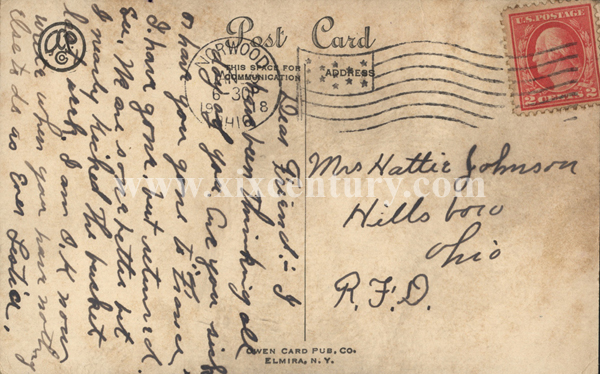 Post Card
THIS SPACE FOR
COMMUNICATION
ADDRESS
NORWOOD
6-30P
1918
OHIO
U.S. POSTAGE
2 CENTS 2
Dear Friend:- I
have been thinking all
day of you. Are you sick
or have you gone to France.
I have gone but returned.
See. We are some better but
I nearly kicked the bucket
early. I am O K now
write when you have nothing
else to do as Ever
Mrs Hattie Johnson
Hillsboro
Ohio
R.F.D.
www.xixcentury.com
OWEN CARD PUB. CO.
ELMIRA, N.Y.